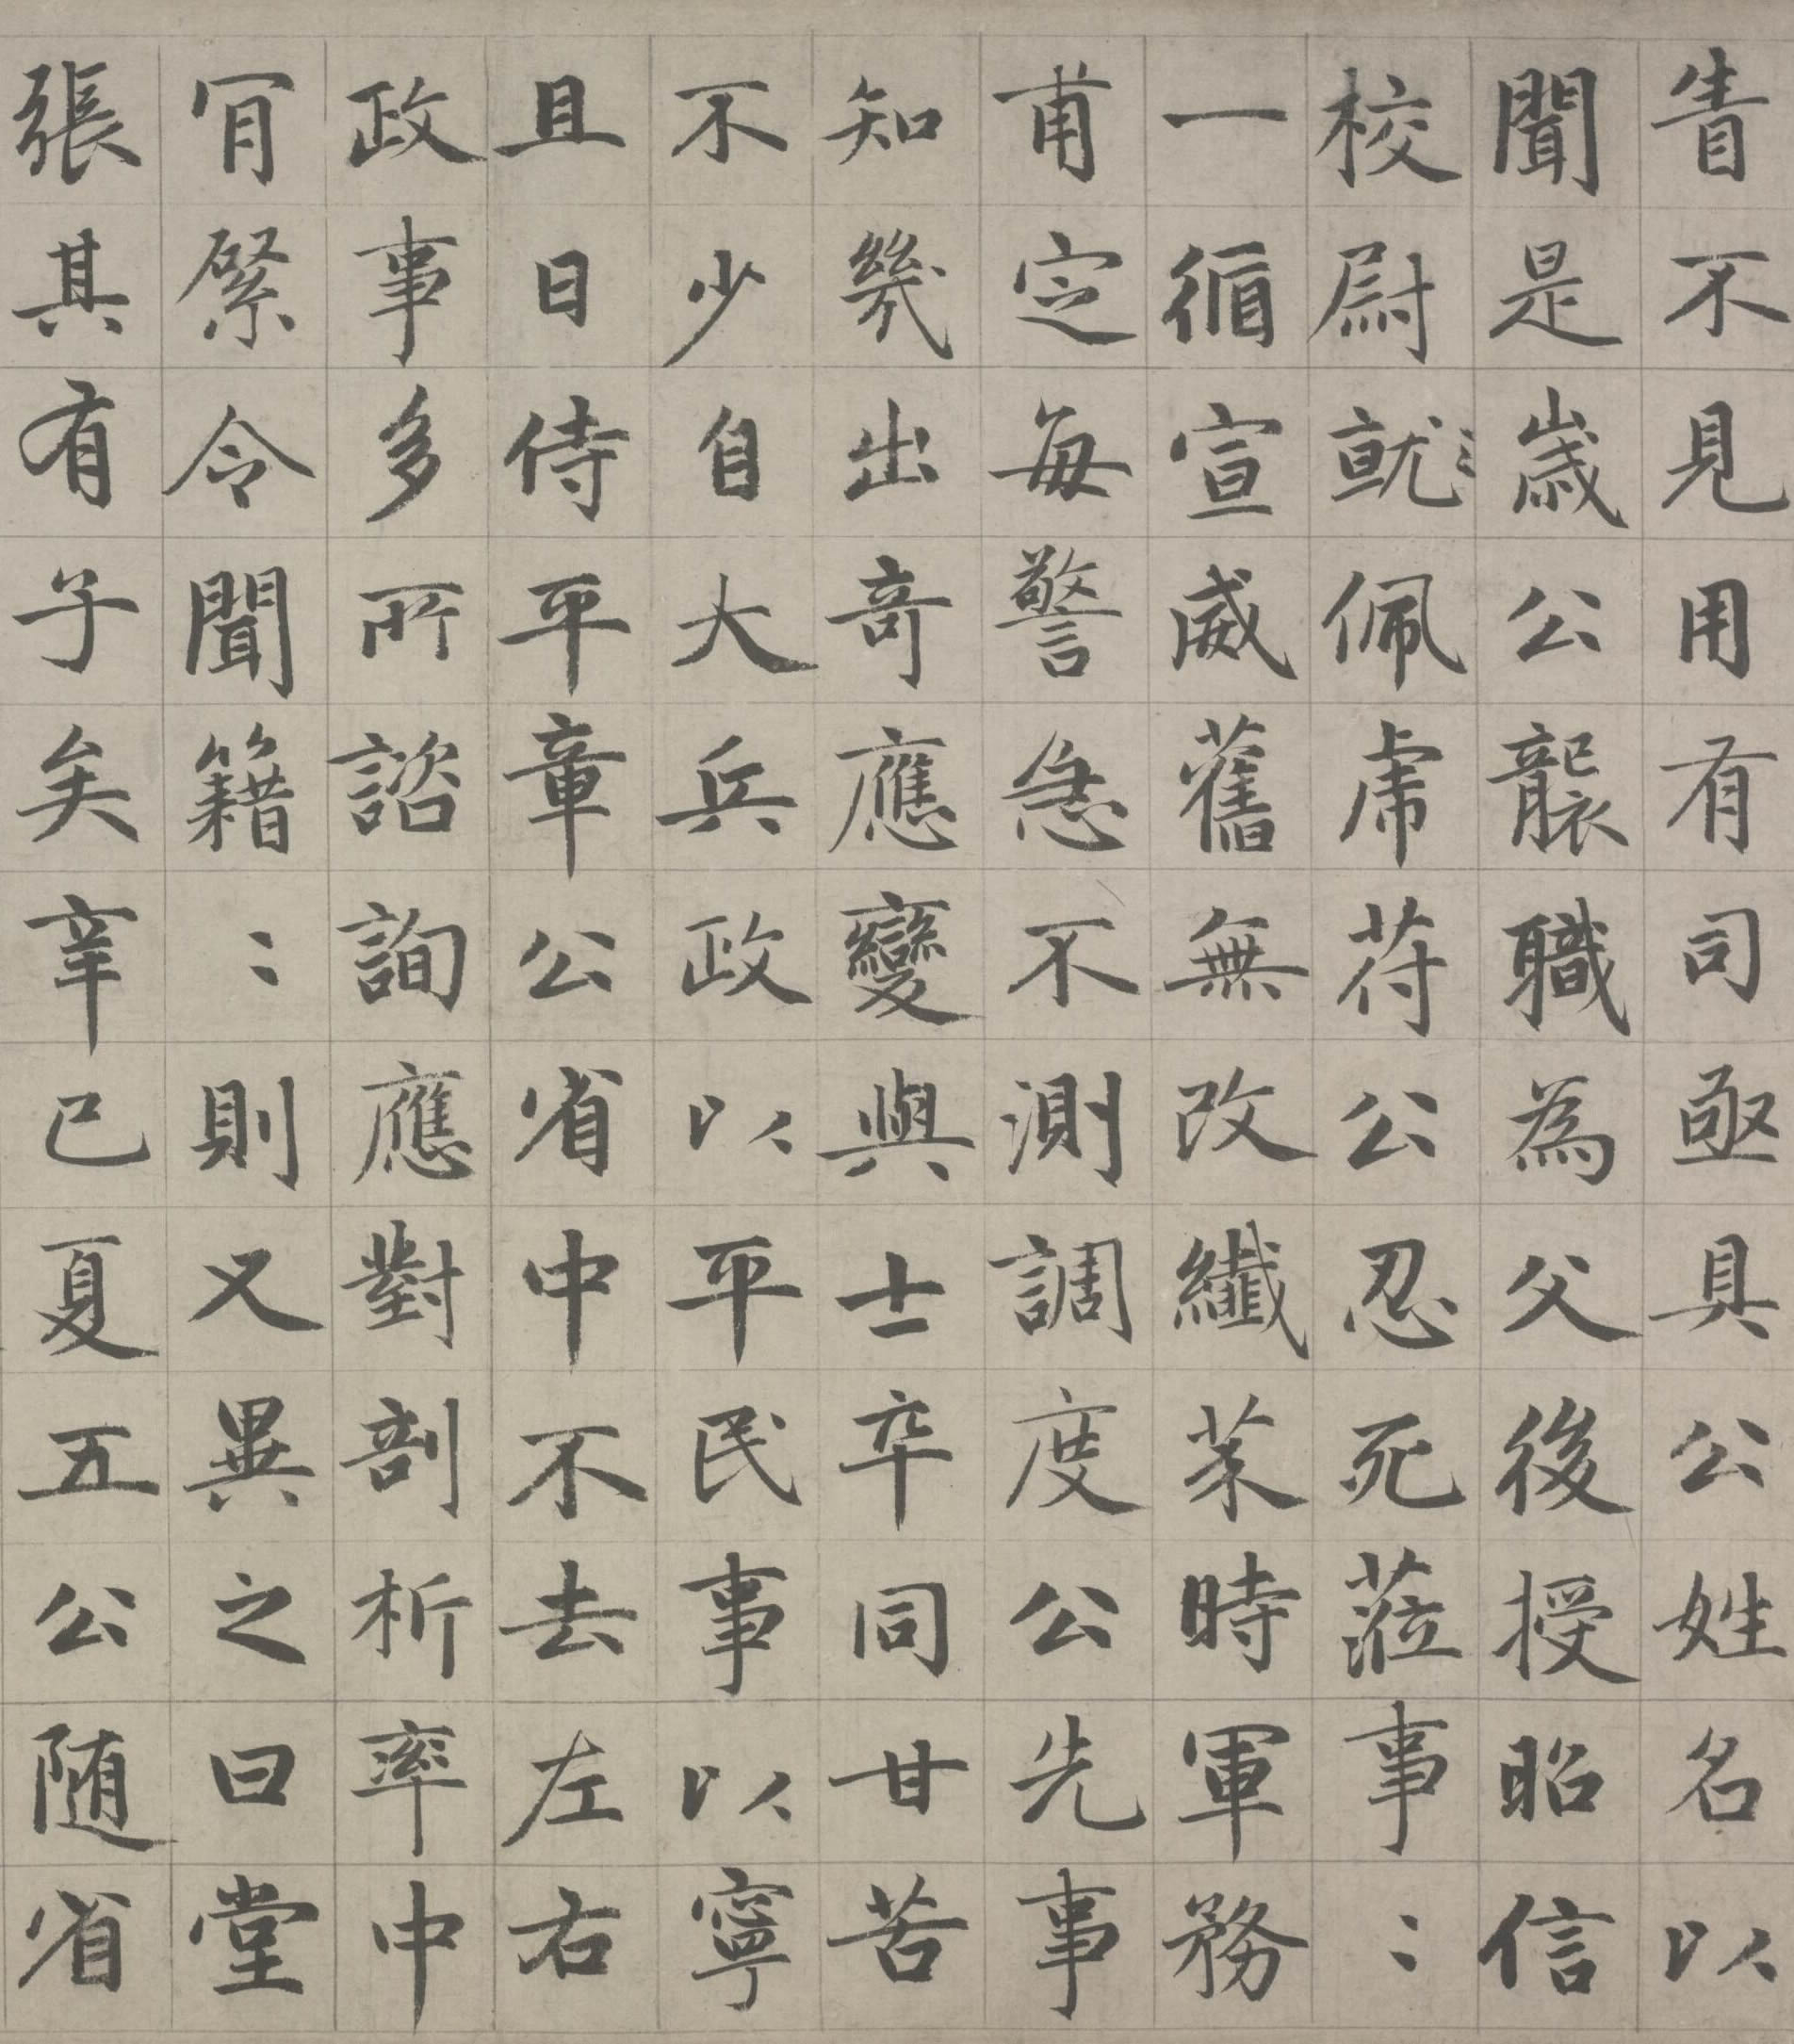 眚不見用有司亟具公姓名以
聞是歲公襲職為父後授昭信
校尉就佩虎符公忍死蒞事〻
一循宣威舊無改纖茉時軍務
甫定每警急不測調度公先事
知幾出奇應變與士卒同甘苦
不少自大兵政以平民事以寧
且日侍平章公省中不去左右
政事多所諮詢應對剖析率中
肎綮令聞籍〻則又異之曰堂
張其有子矣辛巳夏五公隨省